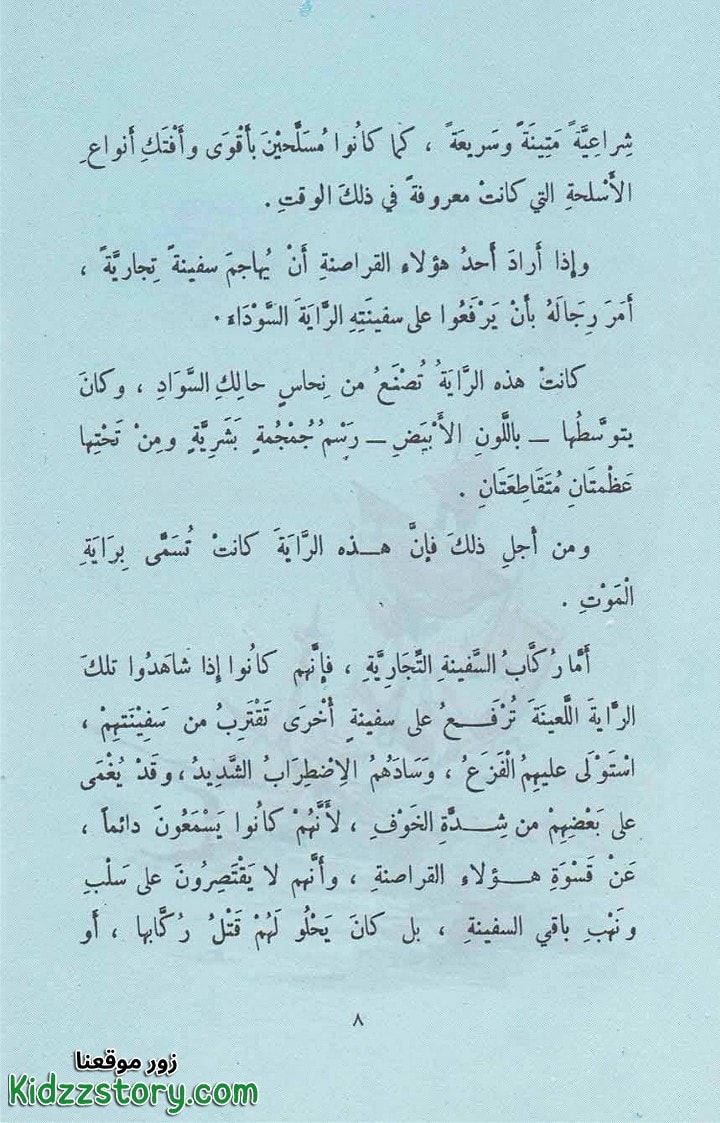 شِراعِيَّةً مَتِينَةً وسَريعَةً ، كما كانُوا مُسَلَّحيْنَ بأَقْوَى وأَفْتَكِ أَنواعِ
الأَسْلحةِ التي كانتْ معروفةً في ذلكَ الوقتِ .
وإذا أَرادَ أَحدُ هؤلاءِ القراصنةِ أَنْ يُهاجمَ سفينةً تِجاريَّةً ،
أَمَرَ رِجَالَهُ بأَنْ يَرْفَعُوا على سفينَتهِ الرَّايَةَ السَّوْدَاءَ .
كانتْ هذه الرَّايَةُ تُصْنَعُ من نِحاسٍ حالِكِ السَّوَادِ ، وكانَ
يتوسَّطُها – باللَّونِ الأَبْيَضِ – رَسْمُ جُمْجُمةٍ بَشَرِيَّةٍ ومِنْ تَحْتِها
عَظْمتَانِ مُتَقَاطِعَتَانِ .
ومن أَجلِ ذلكَ فإنَّ هـذه الرَّايَةَ كانتْ تُسَمَّى بِرايَةِ
الْمَوْتِ .
أَمَّا رُكَّابُ السَّفينةِ التِّجَارِيَّةِ ، فإنَّهم كانُوا إذا شاهَدُوا تلكَ
الرَّايةَ اللَّعينَةَ تُرْفَـعُ على سفينةٍ أُخْرَى تَقْتَرِبُ من سَفِيْنَتهِمْ ،
اسْتَوْلَى عليهِمُ الْفَزَعُ ، وَسَادَهُمُ الِاضْطِرابُ الشَّديدُ ، وقَدْ يُغْمَى
على بَعْضِهِمْ من شِـدَّةِ الخَوْفِ ، لأَنَّهُمْ كانُوا يَسْمَعُونَ دائماً ،
عَنْ قَسْوَةِ هـؤلاءِ القراصنةِ ، وأَنَّهم لا يَقْتَصِرُونَ على سَلْبِ
ونَهْبِ باقي السفينةِ ، بل كانَ يَحْلُو لَهُمْ قَتْلُ رُكَّابِها ، أَو
٨
زور موقعنا
Kidzzstory.com